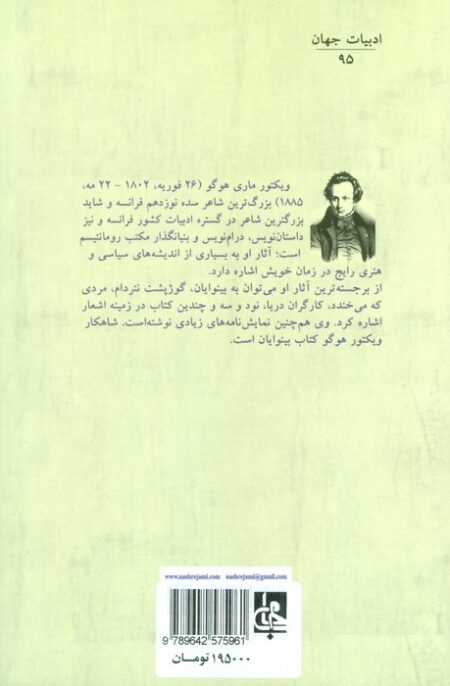 ادبیات جهان
۹۵
ویکتور ماری هوگو (۲۶ فوریه، ۱۸۰۲ - ۲۲ مه،
۱۸۸۵) بزرگ‌ترین شاعر سده نوزدهم فرانسه و شاید
بزرگترین شاعر در گستره ادبیات کشور فرانسه و نیز
داستان‌نویس، درام‌نویس و بنیانگذار مکتب رومانتیسم
است؛ آثار او به بسیاری از اندیشه‌های سیاسی و
هنری رایج در زمان خویش اشاره دارد.
از برجسته‌ترین آثار او می‌توان به بینوایان، گوژپشت نتردام، مردی
که می‌خندد، کارگران دریا، نود و سه و چندین کتاب در زمینه اشعار
اشاره کرد. وی هم‌چنین نمایش‌نامه‌های زیادی نوشته‌است. شاهکار
ویکتور هوگو کتاب بینوایان است.
www.nashrejami.com nashrejami@gmail.com
جامی
9 789642 575961
۱۹۵۰۰۰ تومـان